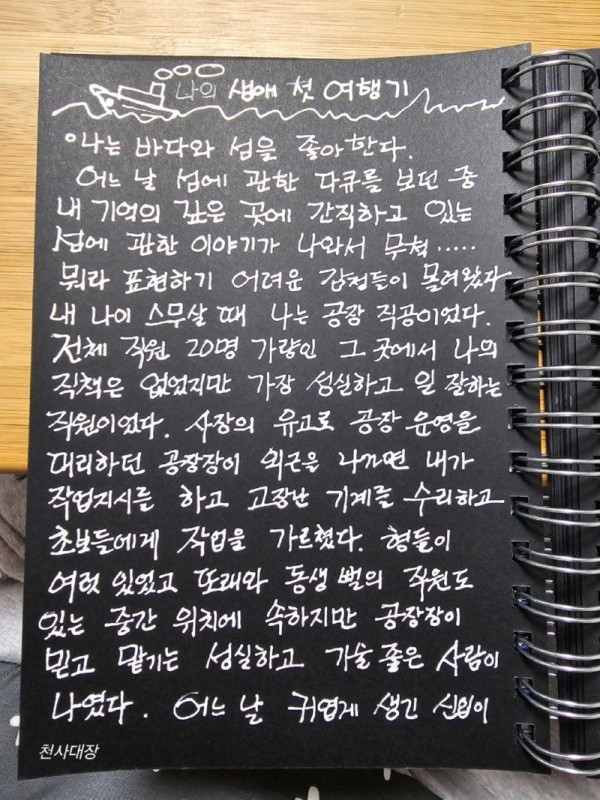 나의 생애 첫 여행기
나는 바다와 섬을 좋아한다.
어느 날 섬에 관한 다큐를 보던 중
내 기억의 깊은 곳에 간직하고 있는
섬에 관한 이야기가 나와서 무척.....
뭐라 표현하기 어려운 감정들이 몰려왔다
내 나이 스무살 때 나는 공장 직공이었다.
전체 직원 20명 가량인 그 곳에서 나의
직책은 없었지만 가장 성실하고 일 잘하는
직원이었다. 사장의 유고로 공장 운영을
대리하던 공장장이 외근을 나가면 내가
작업지시를 하고 고장난 기계를 수리하고
초보들에게 작업을 가르쳤다. 형들이
여럿 있었고 또래와 동생 뻘의 직원도
있는 중간 위치에 속하지만 공장장이
믿고 맡기는 성실하고 기술 좋은 사람이
나였다. 어느 날 귀엽게 생긴 신입이
천사대장